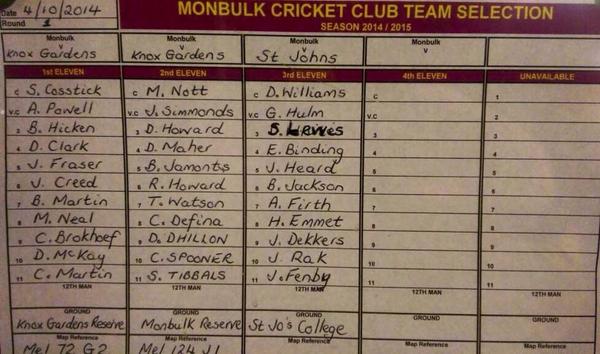 MONBULK CRICKET CLUB TEAM SELECTION
Date 4/10/2014
SEASON 2014 / 2015
Round 1
Monbulk Monbulk Monbulk Monbulk
v v v v
Knox Gardens Knox Gardens St Johns
1st ELEVEN 2nd ELEVEN 3rd ELEVEN 4th ELEVEN UNAVAILABLE
c S. Cosstick c M. Nott c D. Williams c 1
v.c A. Powell v.c J. Simmonds v.c G. Hulm v.c 2
3 B. Hicken 3 D. Howard 3 S. 3 3
4 D. Clark 4 D. Maher 4 E. Binding 4 4
5 J. Fraser 5 B. Jamonts 5 J. Heard 5 5
6 J. Creed 6 R. Howard 6 B. Jackson 6 6
7 B. Martin 7 T. Watson 7 A. Firth 7 7
8 M. Neal 8 C. Defina 8 H. Emmet 8 8
9 C. Brokhoef 9 D. DHILLON 9 J. Dekkers 9 9
10 D. McKay 10 C. SPOONER 10 J. Rak 10 10
11 C. Martin 11 S. TIBBALS 11 J. Fenby 11 11
12TH MAN 12TH MAN 12TH MAN 12TH MAN
GROUND GROUND GROUND GROUND
Knox Gardens Reserve Monbulk Reserve St Jo's College
Map Reference Map Reference Map Reference Map Reference
Mel 72 G2 Mel 124 J1